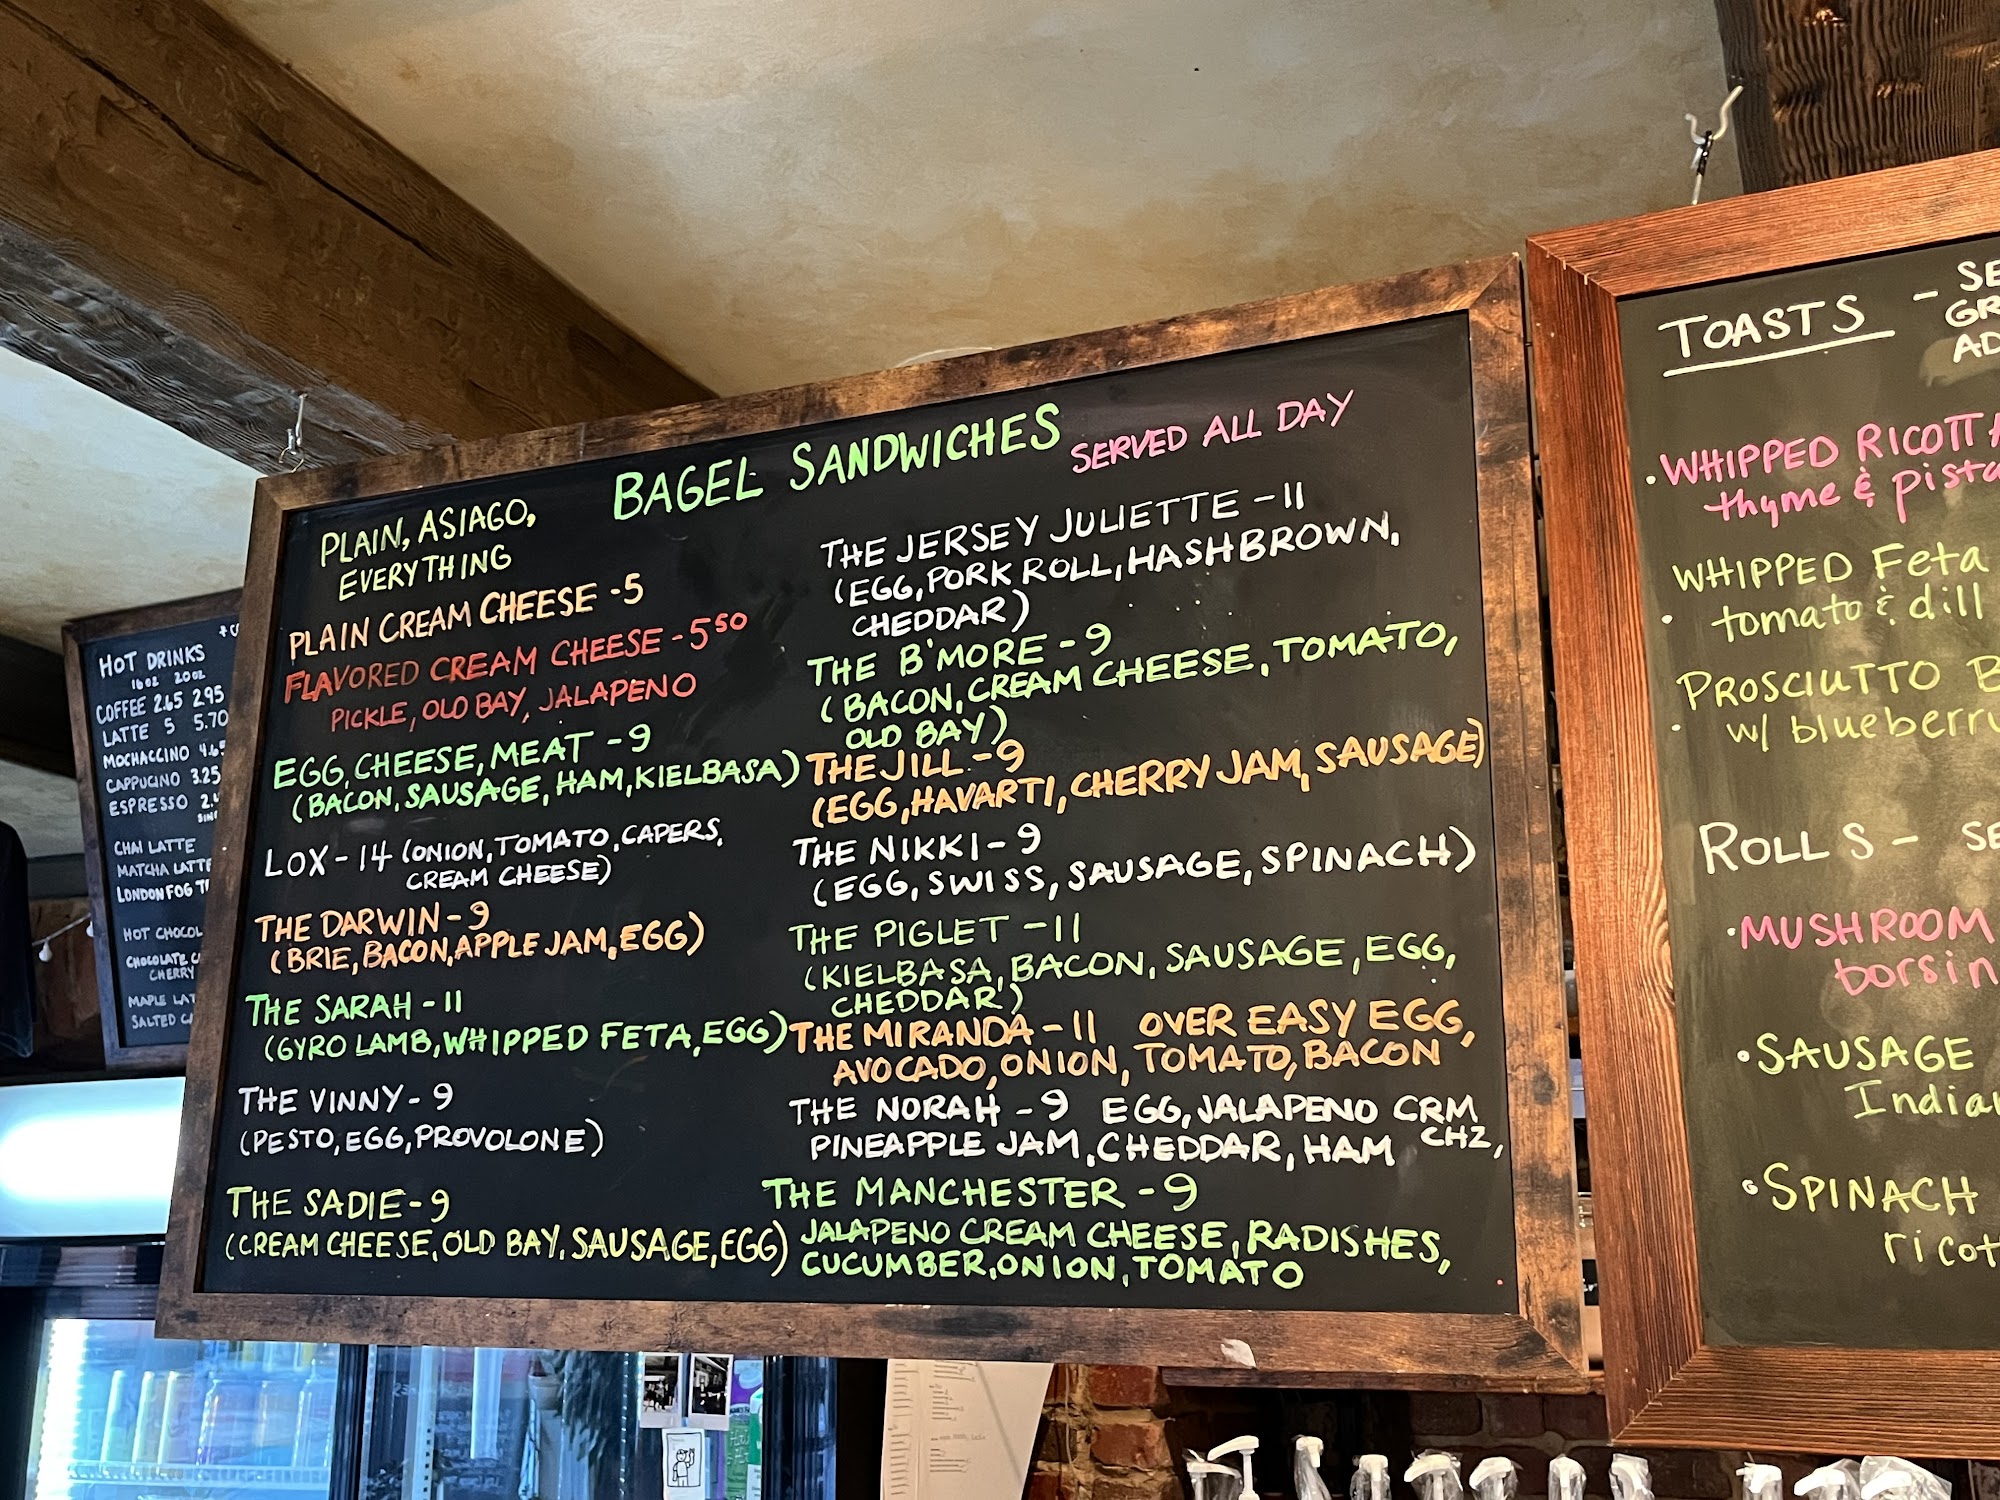 HOT DRINKS
16oz 20oz
COFFEE 2.65 2.95
LATTE 5 5.70
MOCHACCINO 4.65
CAPPUCINO 3.25
ESPRESSO
CHAI LATTE
MATCHA LATTE
LONDON FOG
HOT CHOCOL
CHOCOLATE
CHERRY
MAPLE LAT
SALTED
BAGEL SANDWICHES SERVED ALL DAY
PLAIN, ASIAGO,
EVERYTHING
PLAIN CREAM CHEESE -5
FLAVORED CREAM CHEESE -5 50
PICKLE, OLD BAY, JALAPENO
EGG, CHEESE, MEAT -9
(BACON, SAUSAGE, HAM, KIELBASA)
LOX - 14 (ONION, TOMATO, CAPERS,
CREAM CHEESE)
THE DARWIN - 9
(BRIE, BACON, APPLE JAM, EGG)
THE SARAH - 11
(GYRO LAMB, WHIPPED FETA, EGG)
THE VINNY - 9
(PESTO, EGG, PROVOLONE)
THE SADIE - 9
(CREAM CHEESE, OLD BAY, SAUSAGE, EGG)
THE JERSEY JULIETTE - 11
(EGG, PORK ROLL, HASHBROWN,
CHEDDAR)
THE B'MORE - 9
(BACON, CREAM CHEESE, TOMATO,
OLD BAY)
THE JILL - 9
(EGG, HAVARTI, CHERRY JAM, SAUSAGE)
THE NIKKI - 9
(EGG, SWISS, SAUSAGE, SPINACH)
THE PIGLET - 11
(KIELBASA, BACON, SAUSAGE, EGG,
CHEDDAR)
THE MIRANDA - 11 OVER EASY EGG,
AVOCADO, ONION, TOMATO, BACON
THE NORAH - 9 EGG, JALAPENO CRM
CHZ,
PINEAPPLE JAM, CHEDDAR, HAM
THE MANCHESTER - 9
JALAPENO CREAM CHEESE, RADISHES,
CUCUMBER, ONION, TOMATO
TOASTS - SE
GR
AD
• WHIPPED RICOTTA
thyme & pista
• WHIPPED Feta
tomato & dill
• PROSCIUTTO B
w/ blueberry
ROLLS - SE
• MUSHROOM
borsin
• SAUSAGE
Indian
• SPINACH
ricot